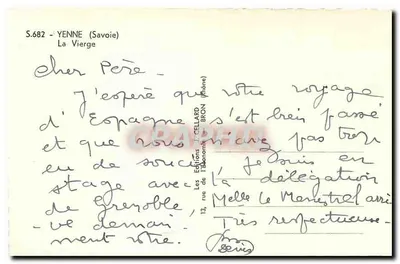 S.682 - YENNE (Savoie)
La Vierge
Cher Père -
J'espère que votre voyage
d'Espagne s'est bien passé
et que vous n'avez pas trop
eu de souci, je suis en
stage avec la délégation
de Grenoble, Melle le Menestrel arri
-ve demain. Très respectueuse-
ment vôtre.
Denis
Les Editions CELLARD
12, rue de l'Economie - BRON (Rhône)